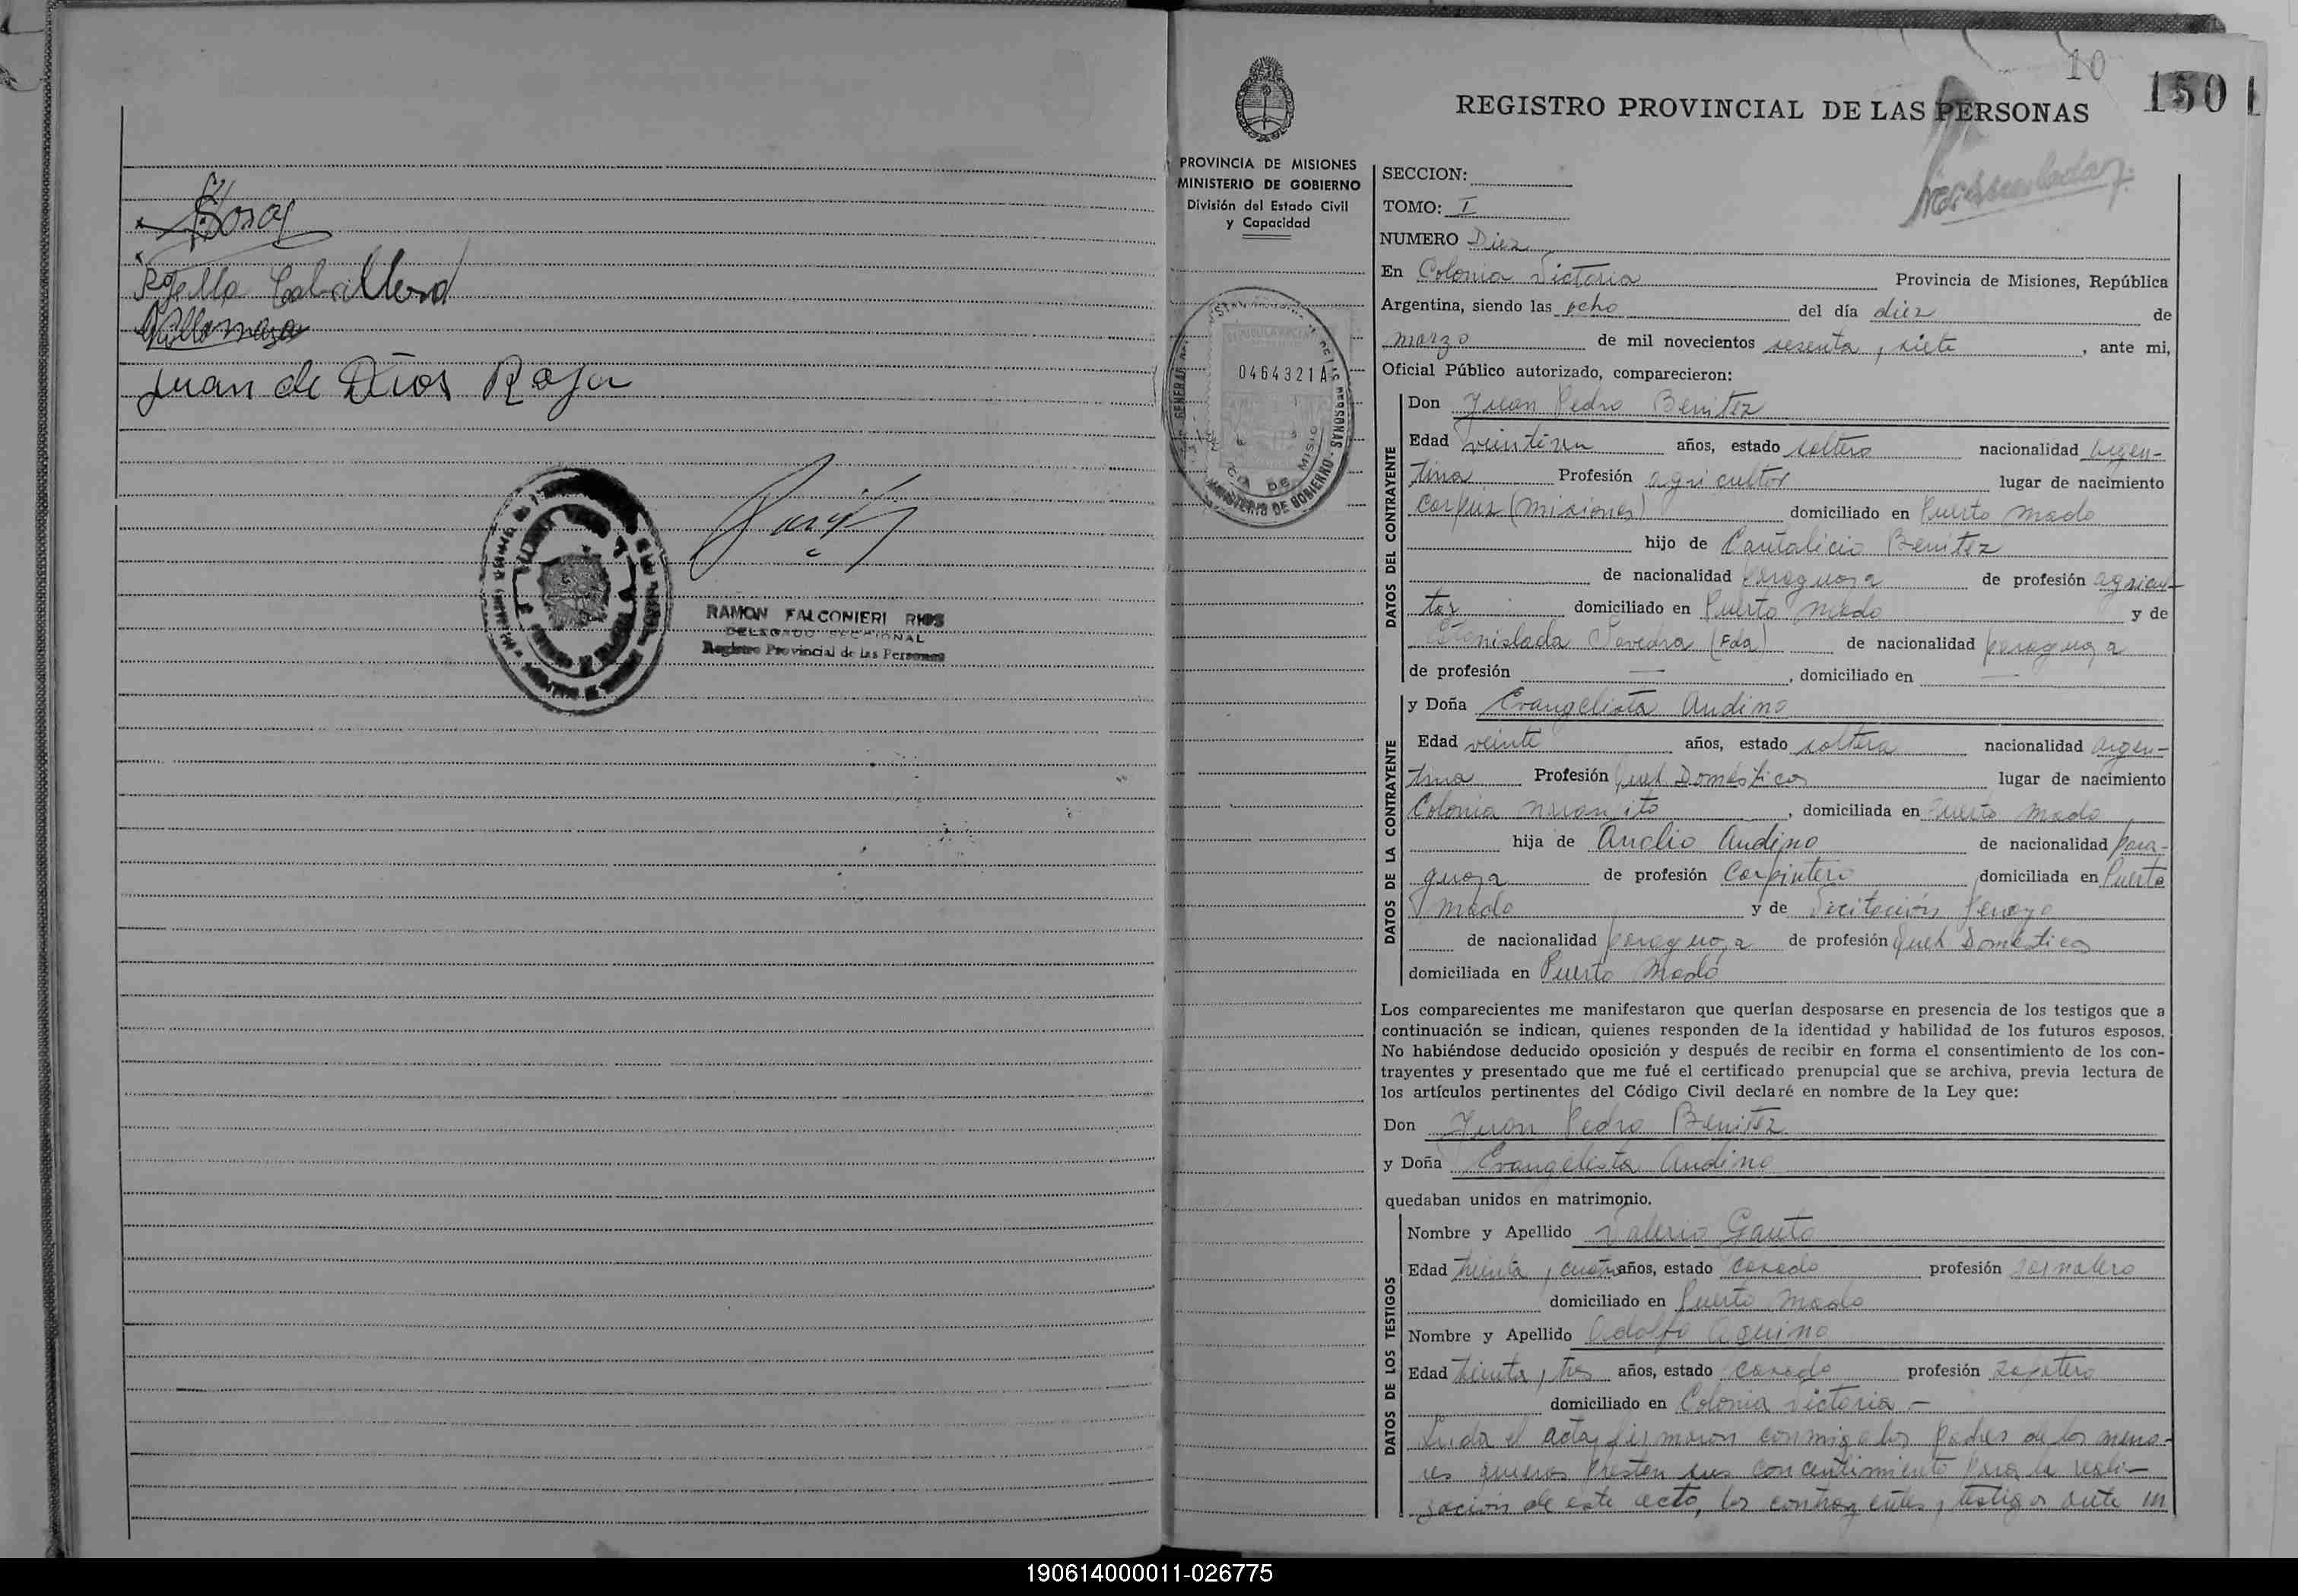 Rogelio Caballero
Villamaya
Juan de Dios Roja
RAMON FALCONIERI RIOS
DELEGADO SECCIONAL
Registro Provincial de las Personas
10
1501
REGISTRO PROVINCIAL DE LAS PERSONAS
PROVINCIA DE MISIONES
MINISTERIO DE GOBIERNO
División del Estado Civil
y Capacidad
0464321A
MINISTERIO DE GOBIERNO
SECCION:
TOMO: I
NUMERO Diez
En Colonia Victoria Provincia de Misiones, República
Argentina, siendo las ocho del día diez de
marzo de mil novecientos sesenta y siete, ante mi,
Oficial Público autorizado, comparecieron:
DATOS DEL CONTRAYENTE
Don Juan Pedro Benitez
Edad veintiun años, estado soltero nacionalidad argen-
tina Profesión agricultor lugar de nacimiento
Corpus (Misiones) domiciliado en Puerto Mado
hijo de Cantalicio Benitez
de nacionalidad paraguaya de profesión agricul-
tor domiciliado en Puerto Mado y de
Estanislada (Fda) de nacionalidad paraguaya
de profesión — , domiciliado en —
DATOS DE LA CONTRAYENTE
y Doña Evangelista Audino
Edad veinte años, estado soltera nacionalidad argen-
tina Profesión Queh Domésticos lugar de nacimiento
Colonia , domiciliada en Puerto Mado
hija de Analio Audino de nacionalidad para-
guaya de profesión Carpintero domiciliada en Puerto
Mado y de
de nacionalidad paraguaya de profesión Queh Domésticos
domiciliada en Puerto Mado
Los comparecientes me manifestaron que querían desposarse en presencia de los testigos que a
continuación se indican, quienes responden de la identidad y habilidad de los futuros esposos.
No habiéndose deducido oposición y después de recibir en forma el consentimiento de los con-
trayentes y presentado que me fué el certificado prenupcial que se archiva, previa lectura de
los artículos pertinentes del Código Civil declaré en nombre de la Ley que:
Don Juan Pedro Benitez
y Doña Evangelista Audino
quedaban unidos en matrimonio.
DATOS DE LOS TESTIGOS
Nombre y Apellido Valerio Gauto
Edad treinta y cuatro años, estado casado profesión Jornalero
domiciliado en Puerto Mado
Nombre y Apellido Adolfo Aquino
Edad treinta y tres años, estado casado profesión zapatero
domiciliado en Colonia Victoria.-
Leida el acta, firmaron conmigo los padres de los meno-
res quienes presten sus concentimiento para la reali-
zación de este acto, los contrayentes y testigos ante m
190614000011-026775